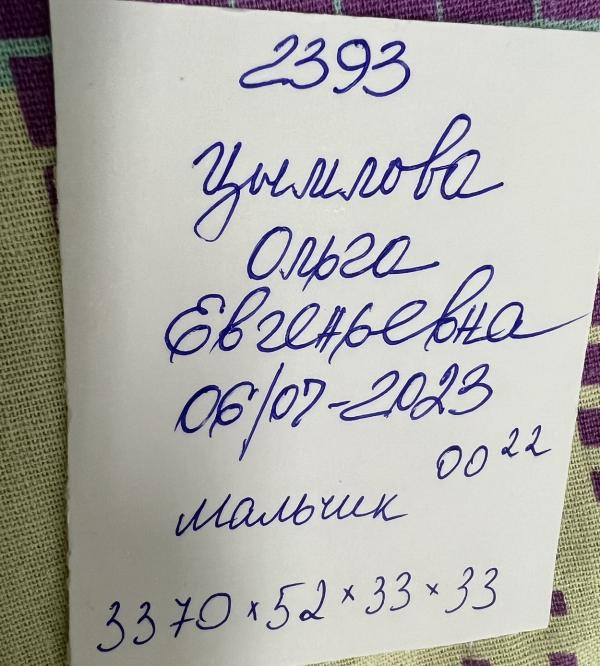 2393
Цымлова
Ольга
Евгеньевна
06/07-2023
00 22
мальчик
3370 × 52 × 33 × 33